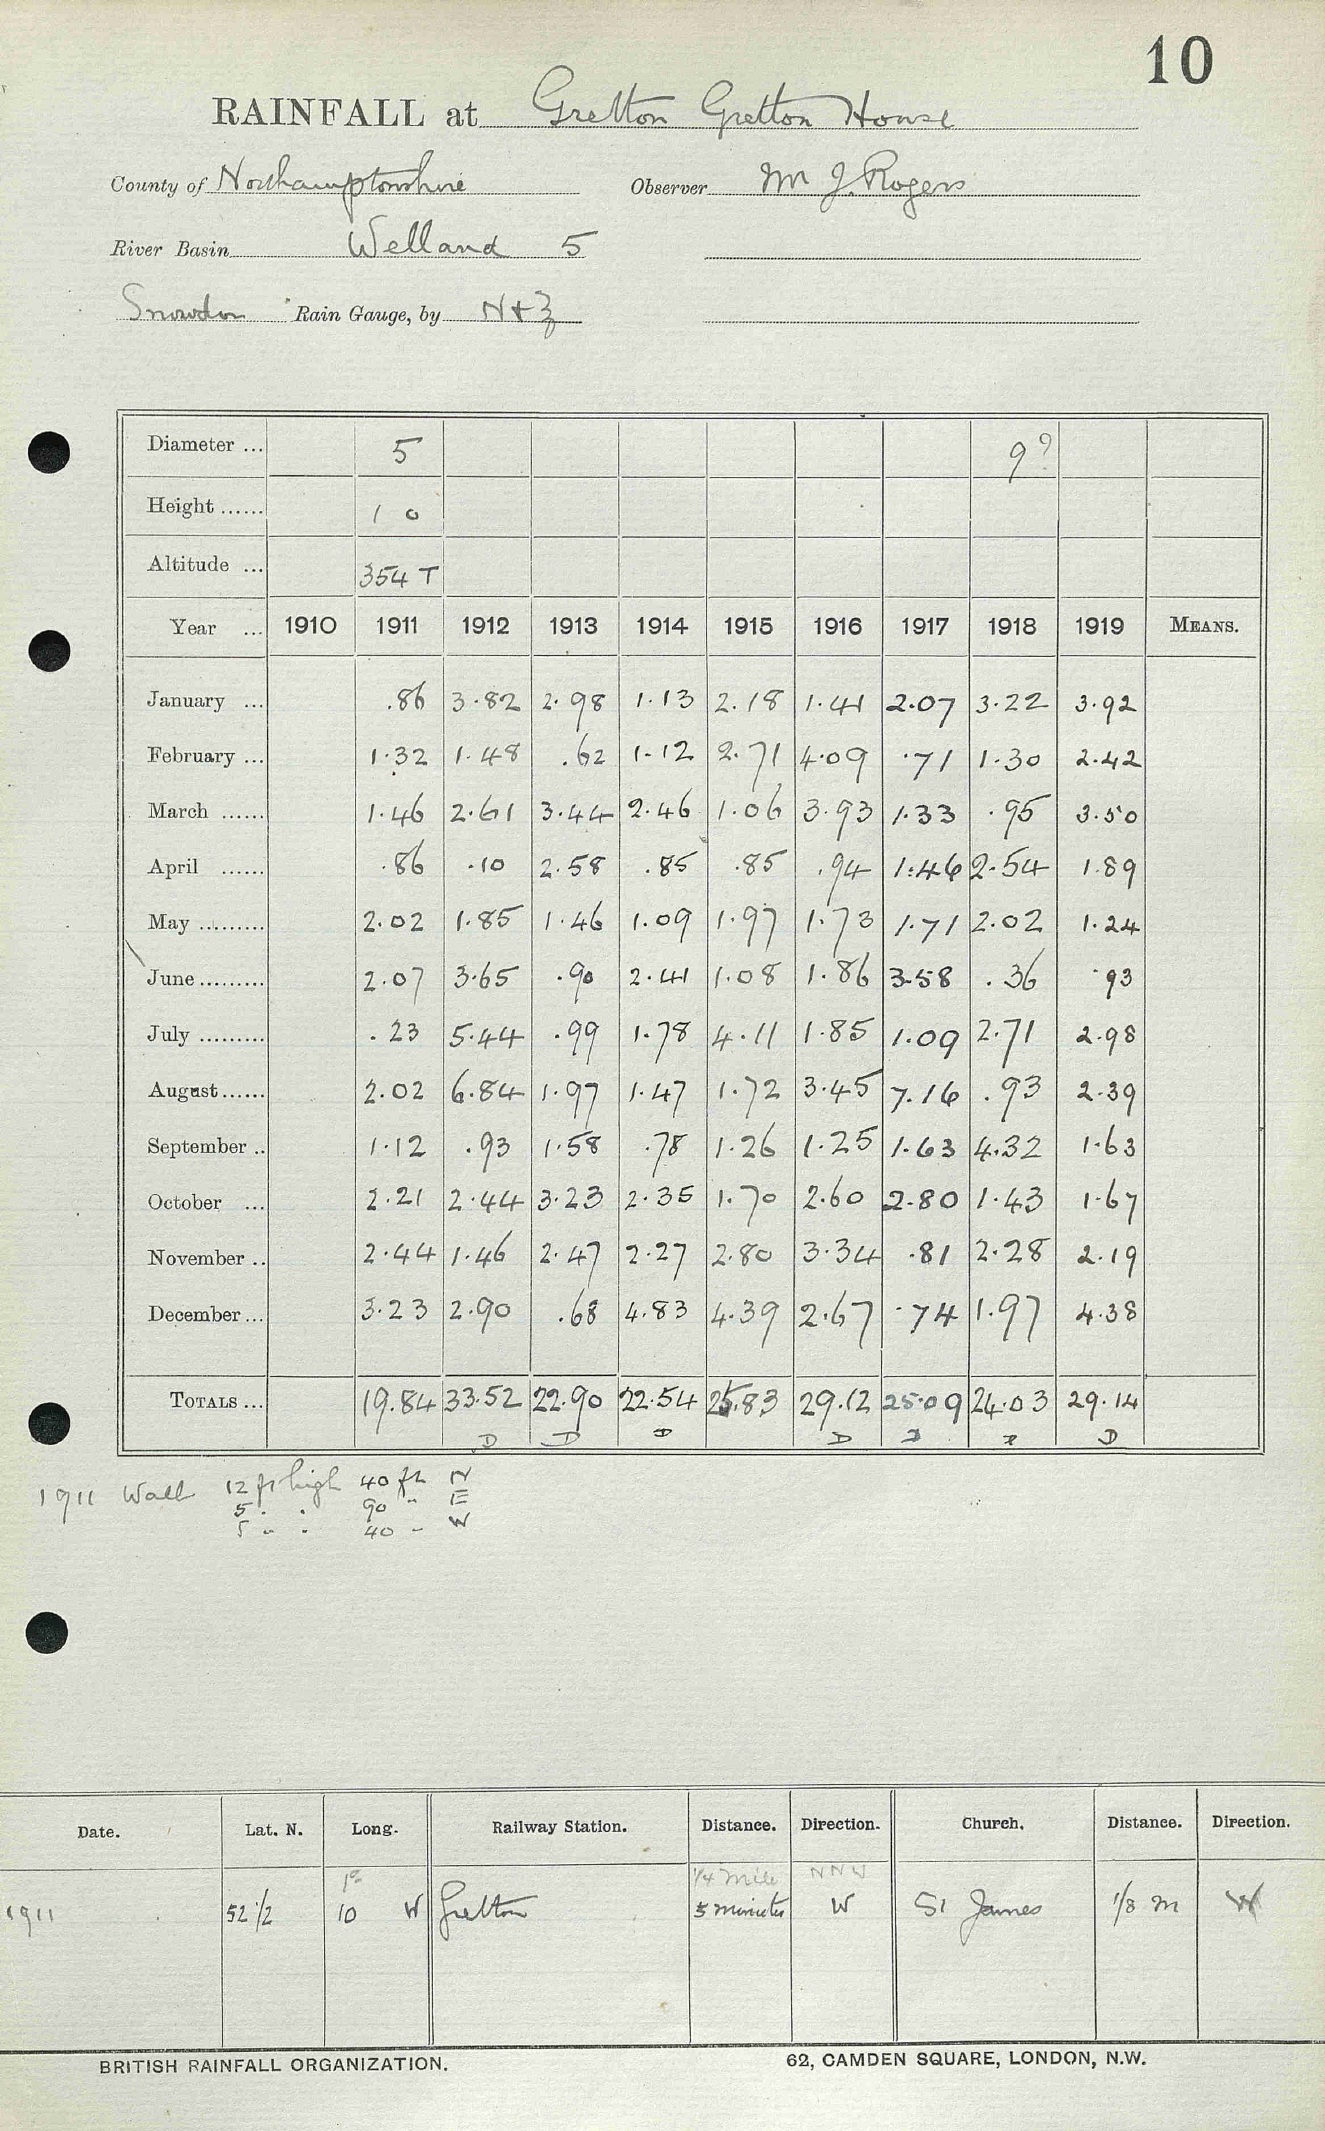 10
RAINFALL at Gretton Gretton House
County of Northamptonshire Observer Mr J. Rogers
River Basin Welland 5
Snowdon Rain Gauge, by N + Z
Diameter ... 5 9?
Height ...... 1 0
Altitude ... 354 T
Year ... 1910 1911 1912 1913 1914 1915 1916 1917 1918 1919 MEANS.
January ... .86 3.82 2.98 1.13 2.18 1.41 2.07 3.22 3.92
February ... 1.32 1.48 .62 1.12 2.71 4.09 .71 1.30 2.42
March ...... 1.46 2.61 3.44 2.46 1.06 3.93 1.33 .95 3.50
April ...... .86 .10 2.58 .85 .85 .94 1.46 2.54 1.89
May ......... 2.02 1.85 1.46 1.09 1.97 1.73 1.71 2.02 1.24
June ......... 2.07 3.65 .90 2.41 1.08 1.86 3.58 .36 .93
July ......... .23 5.44 .99 1.78 4.11 1.85 1.09 2.71 2.98
August ...... 2.02 6.84 1.97 1.47 1.72 3.45 7.16 .93 2.39
September .. 1.12 .93 1.58 .78 1.26 1.25 1.63 4.32 1.63
October ... 2.21 2.44 3.23 2.35 1.70 2.60 2.80 1.43 1.67
November .. 2.44 1.46 2.47 2.27 2.80 3.34 .81 2.28 2.19
December ... 3.23 2.90 .68 4.83 4.39 2.67 .74 1.97 4.38
TOTALS ... 19.84 33.52 22.90 22.54 25.83 29.12 25.09 24.03 29.14
D D D D D D D
1911 Wall 12 ft high 40 ft N
5 " " 90 " E
5 " " 40 " W
Date. Lat. N. Long. Railway Station. Distance. Direction. Church. Distance. Direction.
1/4 mile NNW
1911 52 1/2 10 W Gretton 5 minutes W St James 1/8 m W
BRITISH RAINFALL ORGANIZATION. 62, CAMDEN SQUARE, LONDON, N.W.